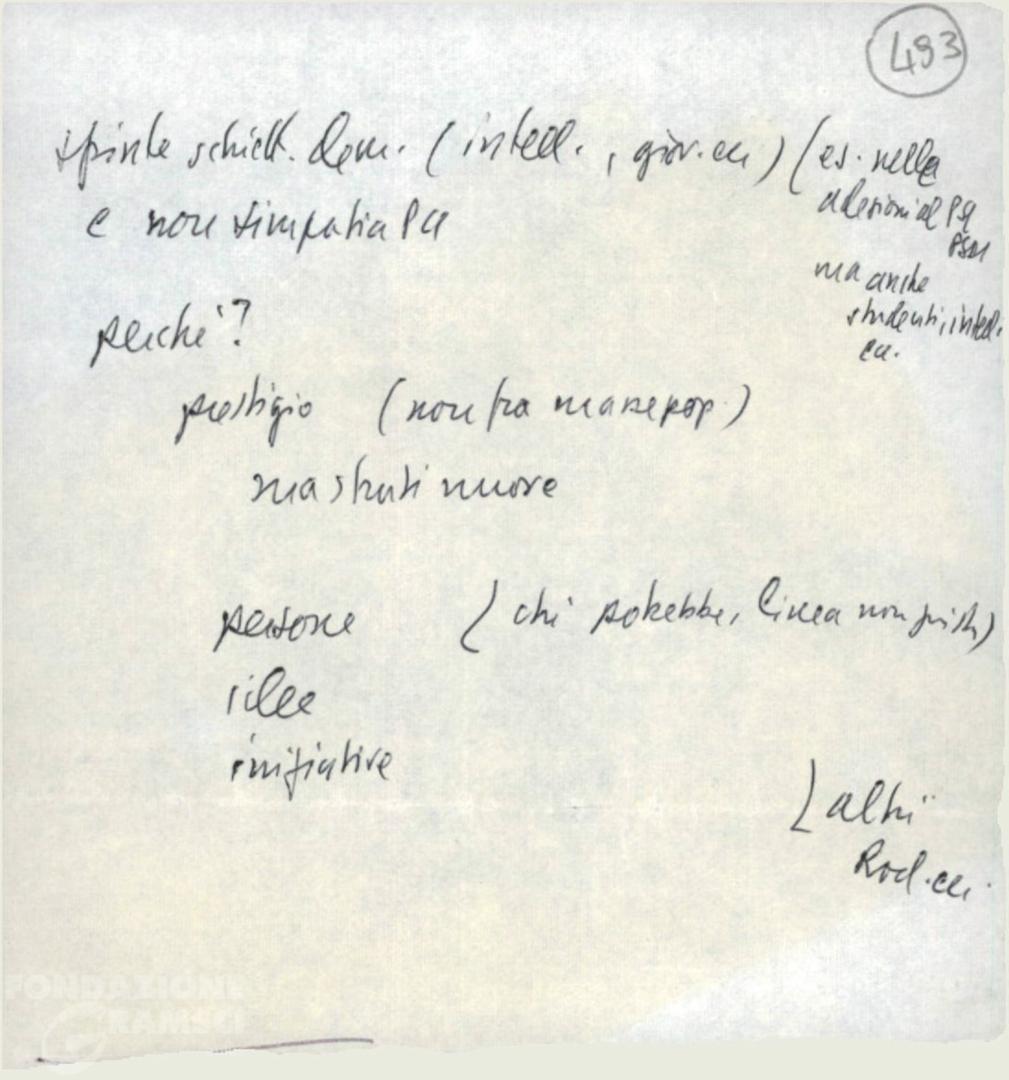 483
spinte schiett. dem. (intell., giov. ecc) (es. nelle
adesioni al
ma anche
studenti, intell.
ecc.
e non simpatia
perché?
prestigio (non fra masse pop.)
ma strati nuove
persone (chi potrebbe, linea non
idee
iniziative
(altri
Rod. ecc.
FONDAZIONE
GRAMSCI